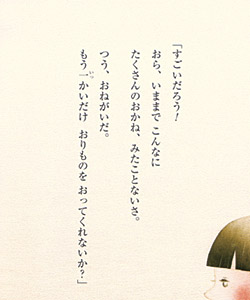 「すごいだろう！
おら、いままで こんなに
たくさんの おかね、みたことないさ。
つう、おねがいだ。
もう一かいだけ おりものを おってくれないか？」
いっ